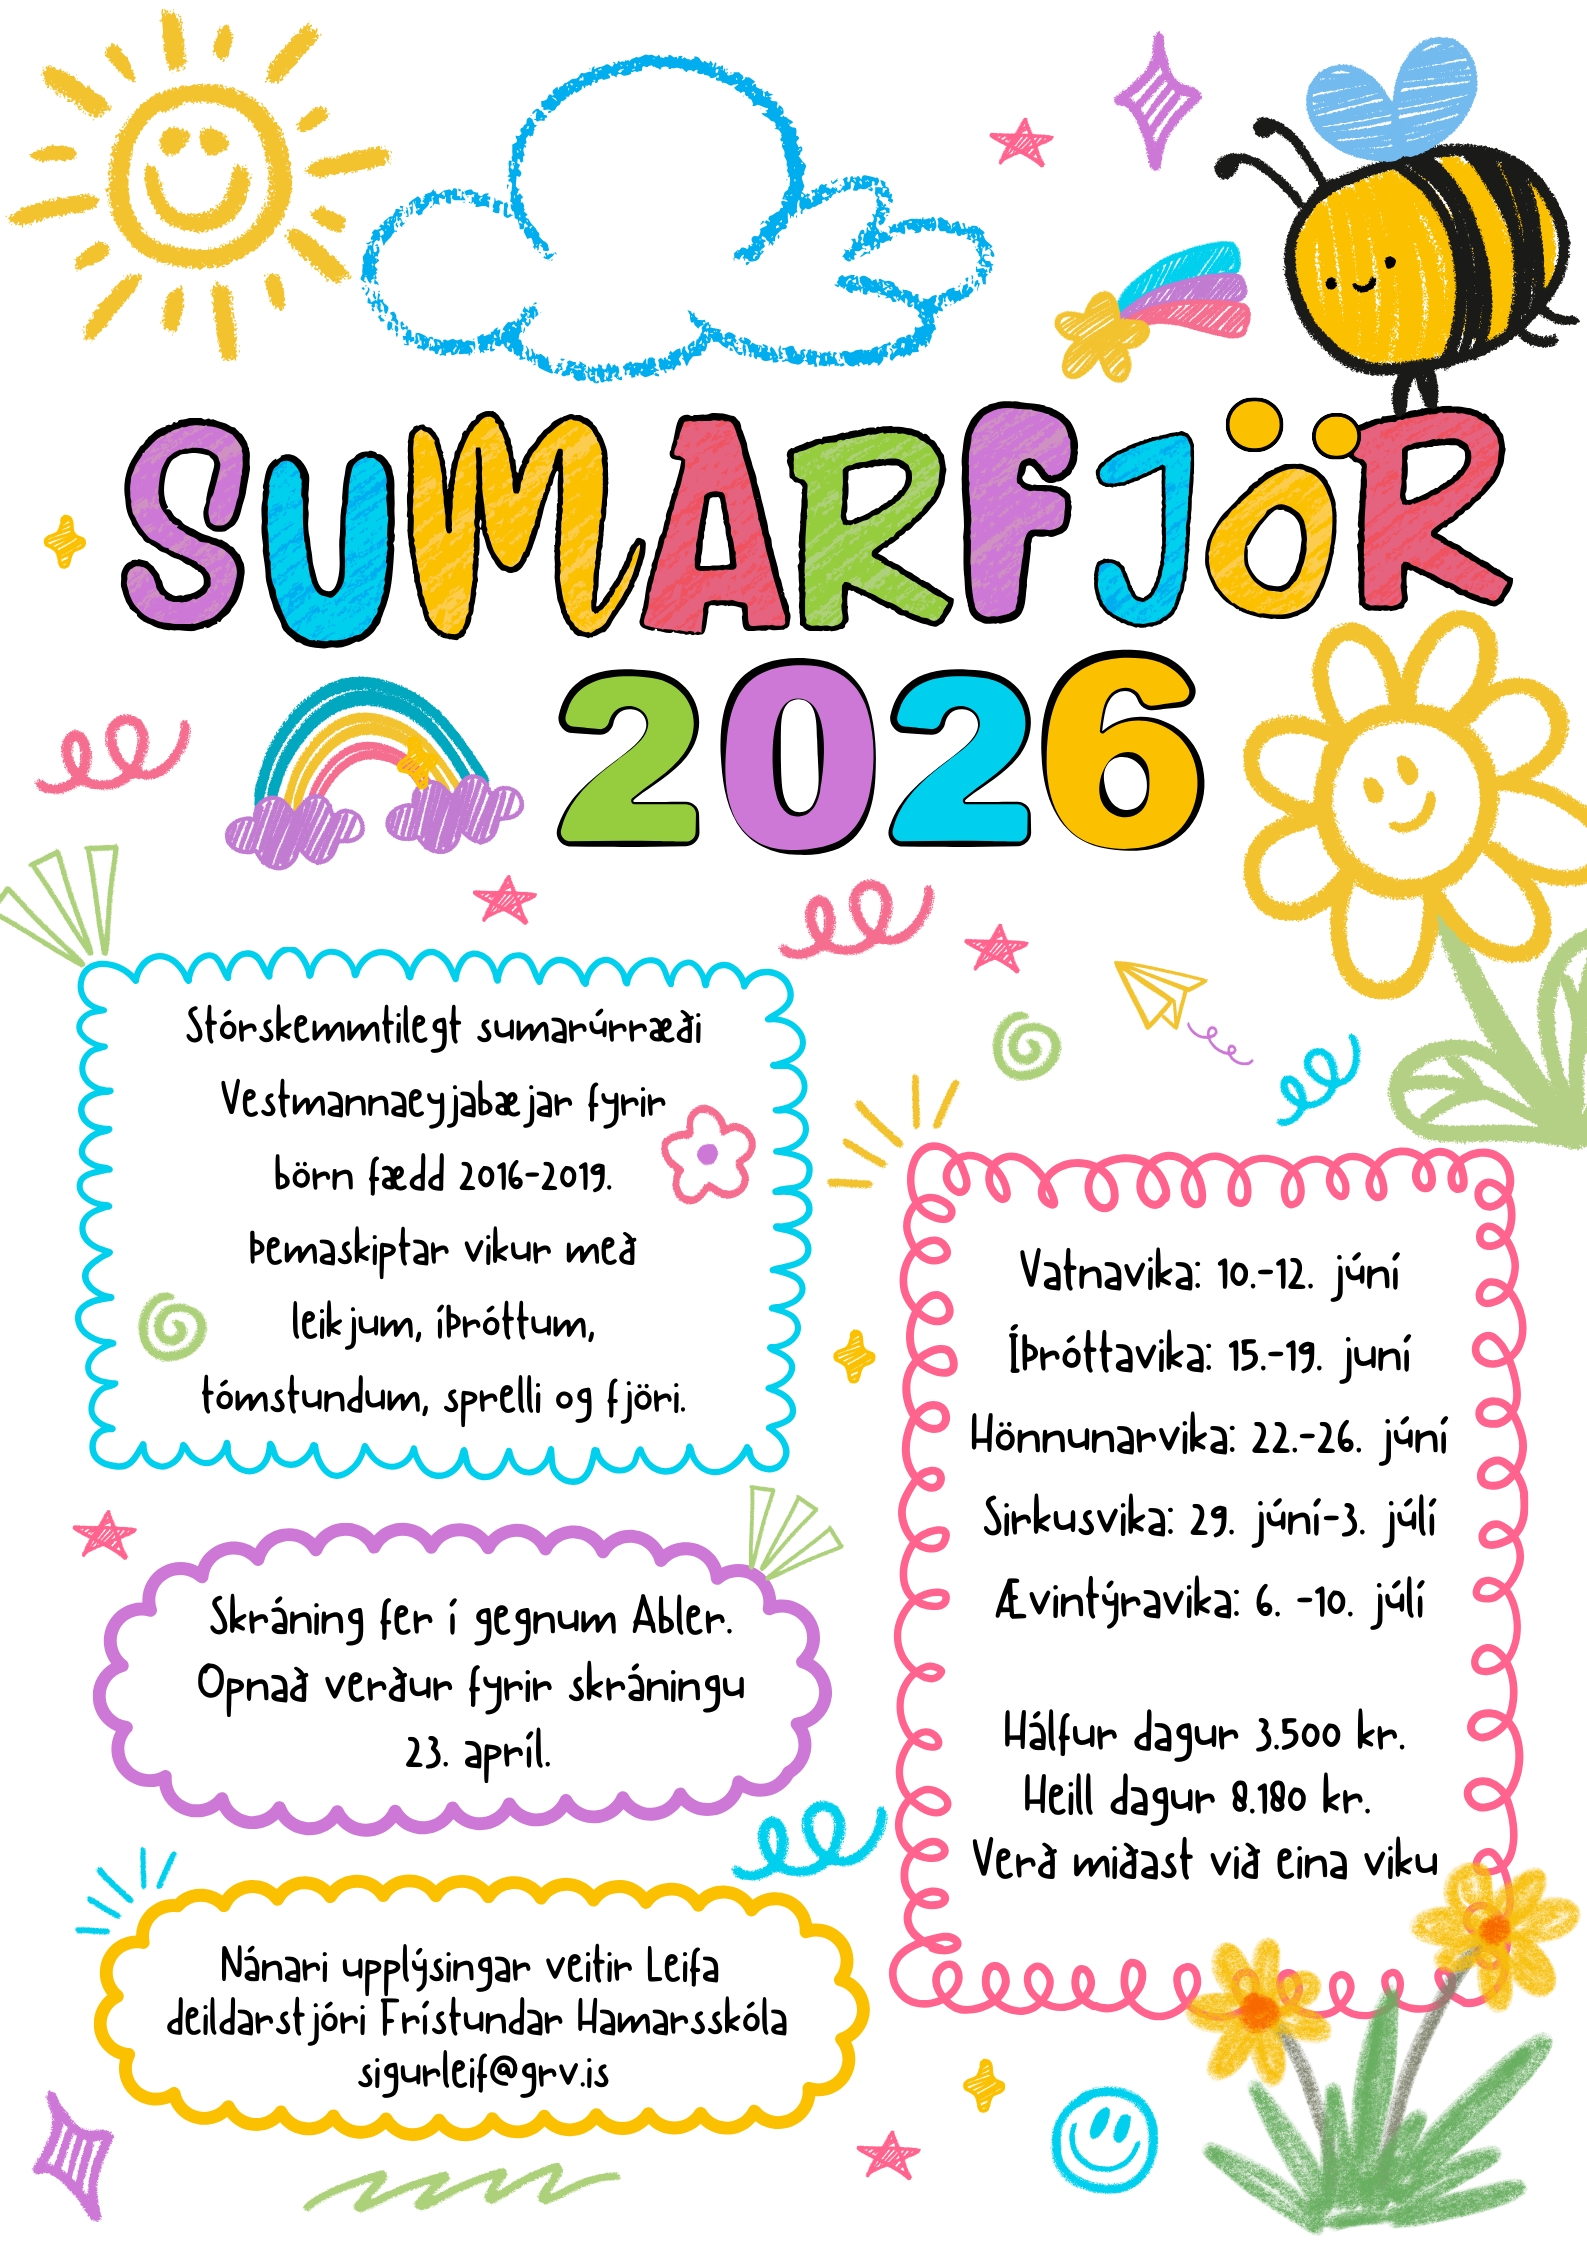 SUMARFJÖR
2026
Stórskemmtilegt sumarúrræði
Vestmannaeyjabæjar fyrir
börn fædd 2016-2019.
Þemaskiptar vikur með
leikjum, íþróttum,
tómstundum, sprelli og fjöri.
Skráning fer í gegnum Abler.
Opnað verður fyrir skráningu
23. apríl.
Nánari upplýsingar veitir Leifa
deildarstjóri Frístundar Hamarsskóla
sigurleif@grv.is
Vatnavika: 10.-12. júní
Íþróttavika: 15.-19. juní
Hönnunarvika: 22.-26. júní
Sirkusvika: 29. júní-3. júlí
Ævintýravika: 6. -10. júlí
Hálfur dagur 3.500 kr.
Heill dagur 8.180 kr.
Verð miðast við eina viku